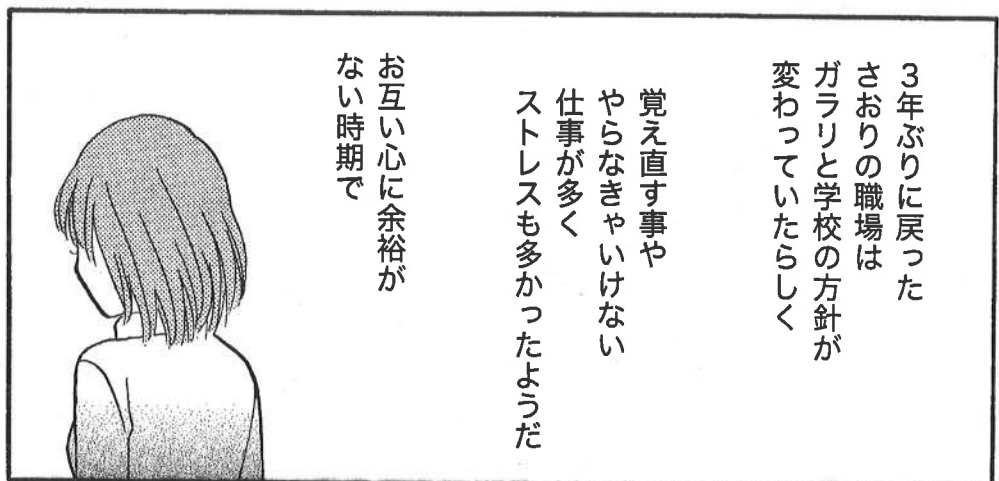 3年ぶりに戻った
さおりの職場は
ガラリと学校の方針が
変わっていたらしく
覚え直す事や
やらなきゃいけない
仕事が多く
ストレスも多かったようだ
お互い心に余裕が
ない時期で